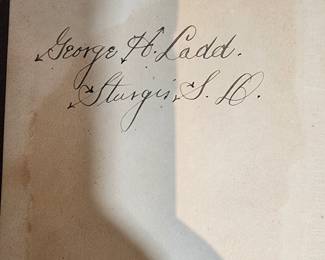 George H. Ladd.
Sturgis, S. D.